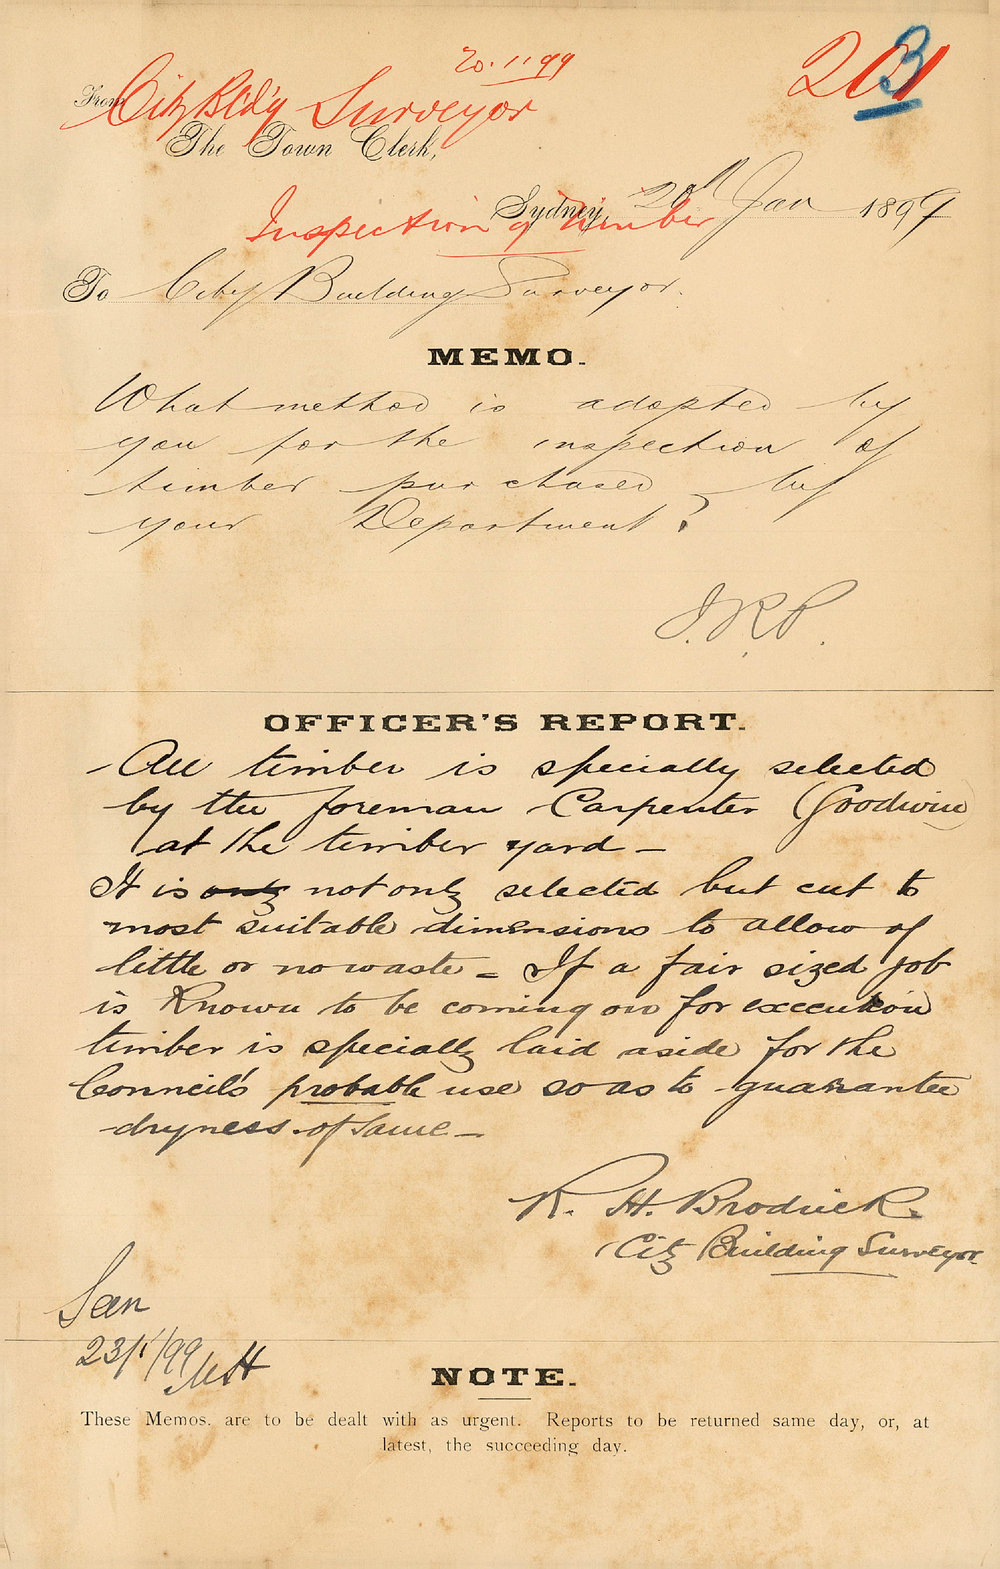 20.1.99
201
B
From City Bld'g Surveyor
The Town Clerk,
Sydney, 20th Jan 1899
Inspection of Timber
To City Building Surveyor.
MEMO.
What method is adopted by
you for the inspection of
timber purchased by
your Department?
OFFICER'S REPORT.
All timber is specially selected
by the foreman Carpenter (Goodwin)
at the timber yard –
It is only not only selected but cut to
most suitable dimensions to allow of
little or no waste – If a fair sized job
is known to be coming on for execution
timber is specially laid aside for the
Council's probable use so as to guarantee
dryness of same –
R. H. Brodrick.
City Building Surveyor.
Seen
23/1/99
NOTE.
These Memos. are to be dealt with as urgent. Reports to be returned same day, or, at
latest, the succeeding day.